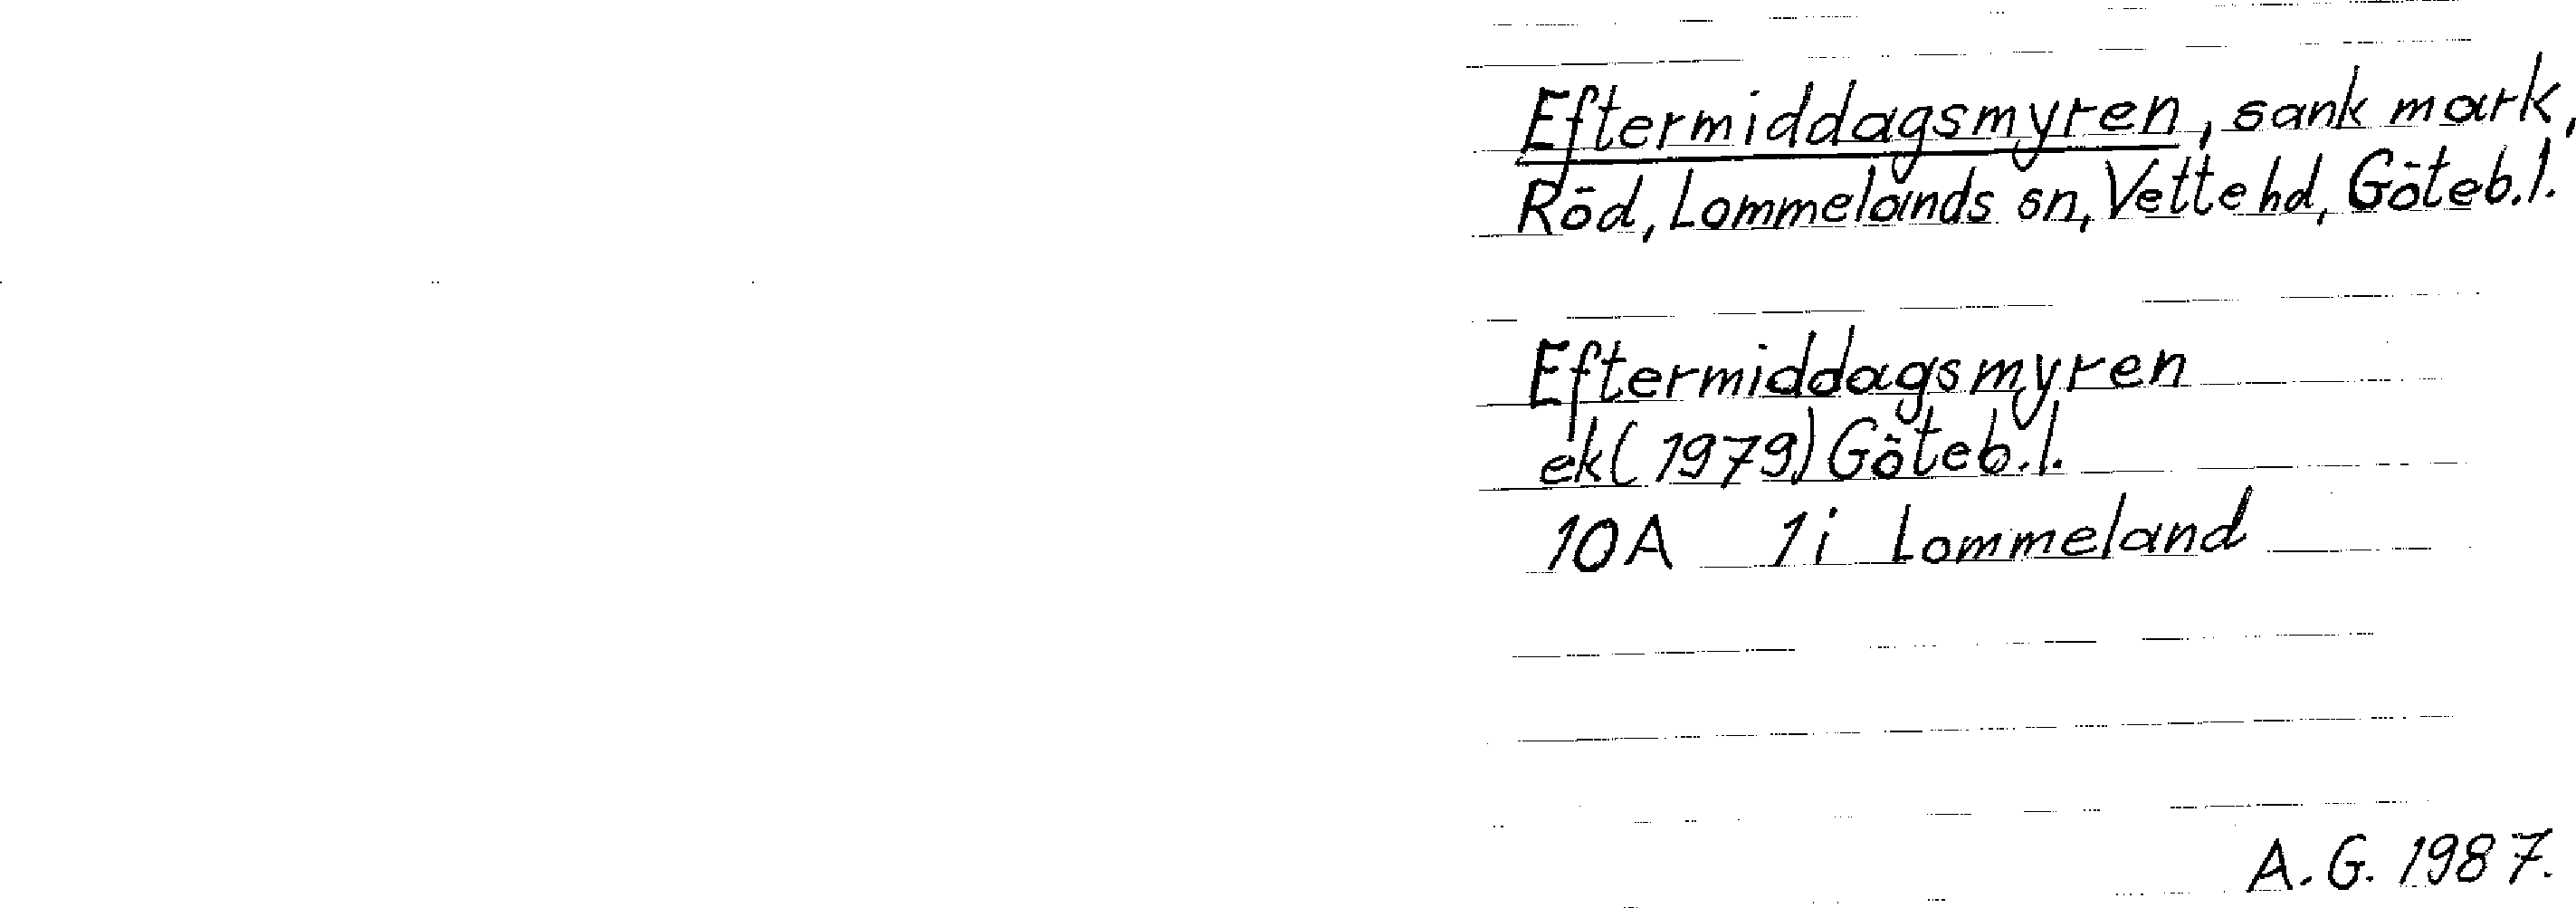 Eftermiddagsmyren, sank mark,
Röd, Lommelands sn, Vette hd, Göteb.l.
Eftermiddagsmyren
ek (1979) Göteb.l.
10A 1i Lommeland
A.G. 1987.